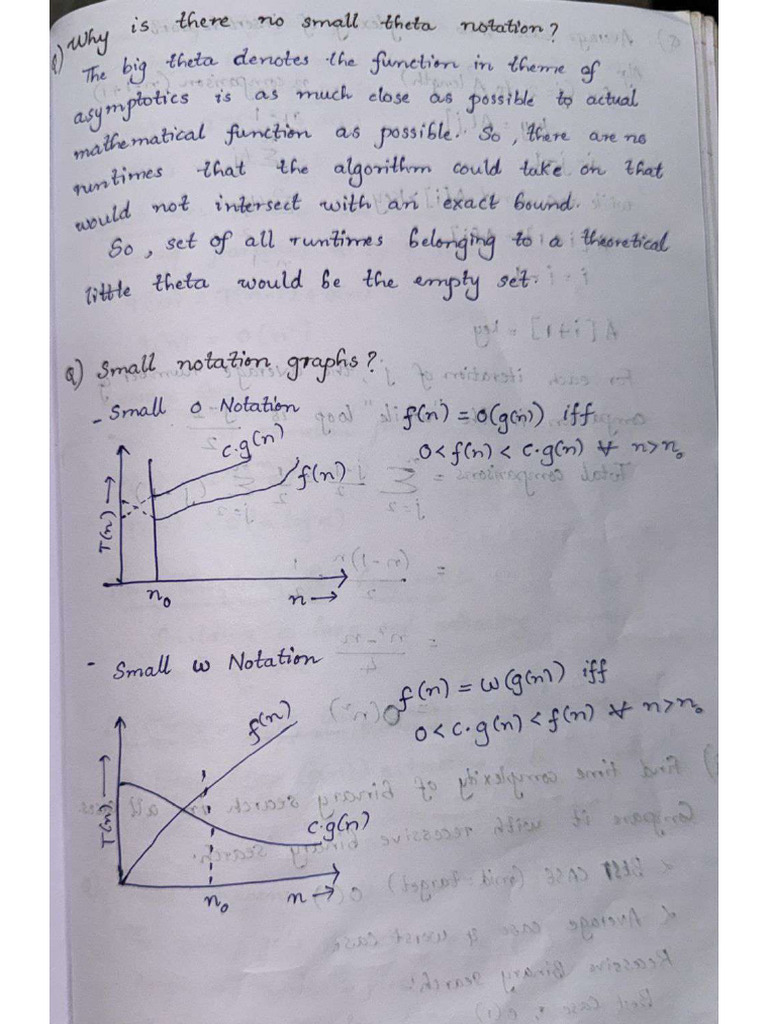 Q) Why is there no small theta notation?
The big theta denotes the function in theme of
asymptotics is as much close as possible to actual
mathematical function as possible. So, there are no
runtimes that the algorithm could take on that
would not intersect with an exact bound.
So, set of all runtimes belonging to a theoretical
little theta would be the empty set.
Q) Small notation graphs?
- Small o Notation
f(n) = o(g(n)) iff
0 < f(n) < c.g(n) ∀ n>n₀
c.g(n)
f(n)
T(n) →
n₀
n →
- Small ω Notation
f(n) = ω(g(n)) iff
0 < c.g(n) < f(n) ∀ n>n₀
f(n)
c.g(n)
T(n) →
n₀
n →